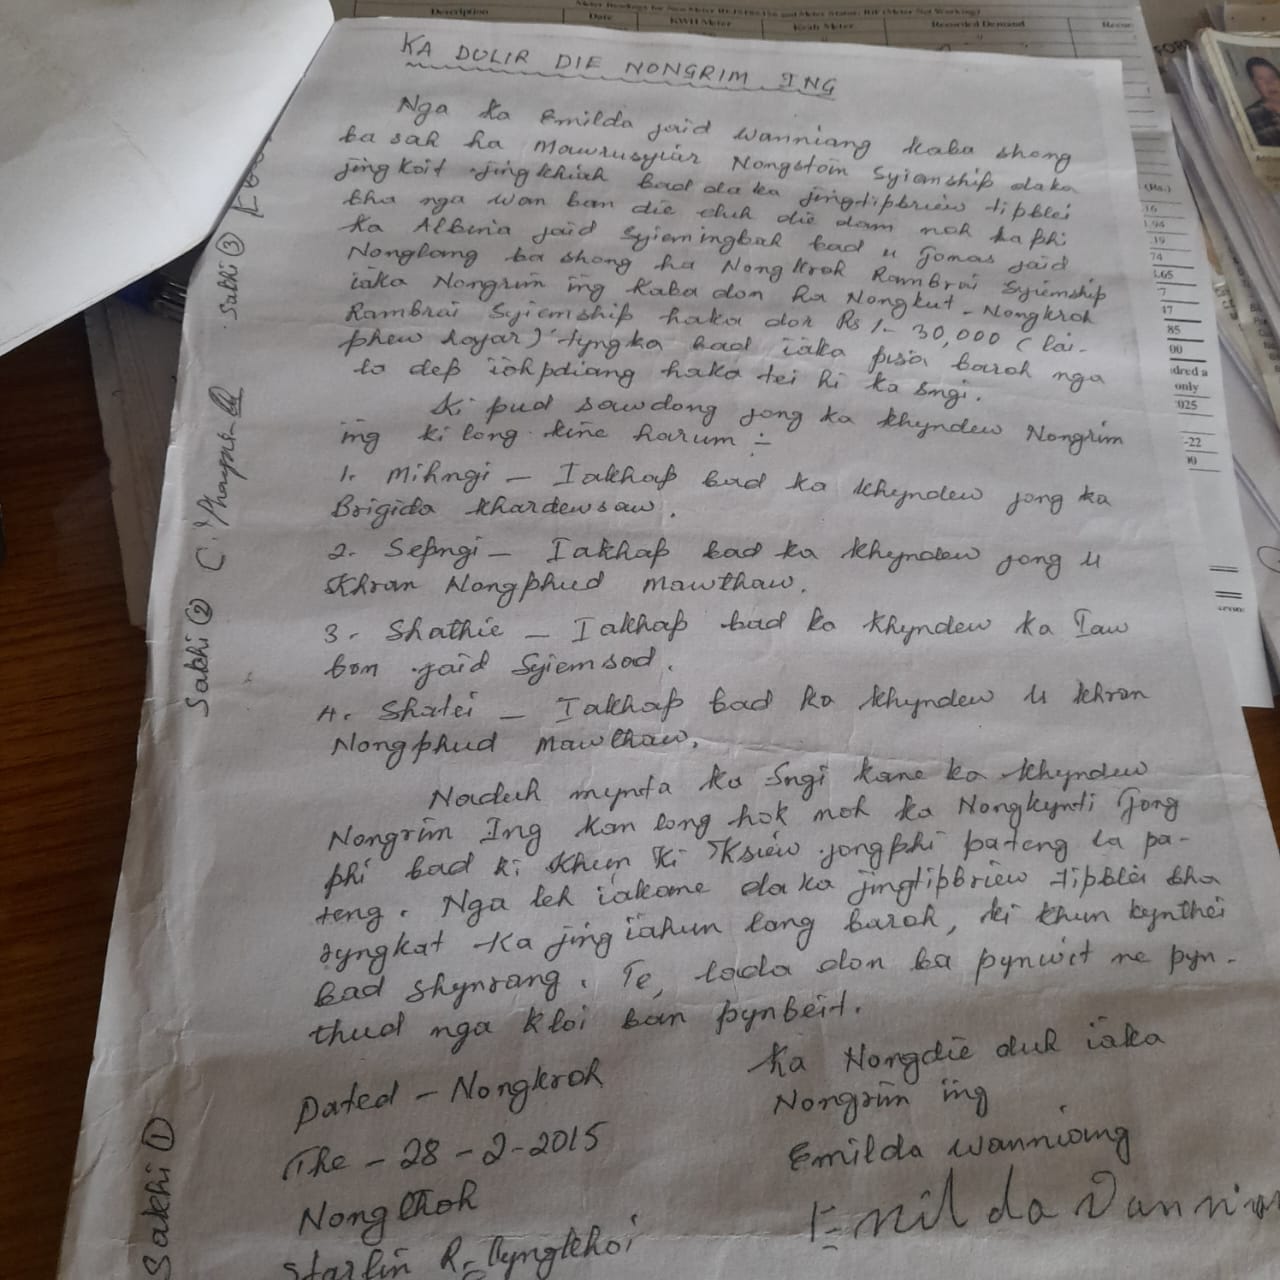 Description
Date
KWH Meter
Kvah Meter
Recorded Demand
KA DULIR DIE NONGRIM ING
Nga ka Emilda jaid Wanniang kaba shong
ba sah ha Mawrusyiar Nongstoin Syiemship daka
jingkoit jingkhiah bad da ka jingtipbriew tipblei
bha nga wan ban die duh die dam noh ha phi
ka Albina jaid Syiemiongbah bad u Jomas jaid
Nonglang ba shong ha Nongkroh Rambrai Syiemship
iaka Nongrim ing kaba don ha Nongkut - Nongkroh
Rambrai Syiemship haka dor Rs /- 30,000 (lai-
phew hajar) tyngka bad iaka pisa baroh nga
la dep iohpdiang haka tei hi ka sngi.
Ki pud sawdong jong ka khyndew Nongrim
ing ki long kine harum :-
1. Mihngi - Iakhap bad ka khyndew jong ka
Brigida Khardewsaw.
2. Sepngi - Iakhap bad ka khyndew jong u
Khran Nongphud Mawthaw.
3. Shathie - Iakhap bad ka khyndew ka Iaw
bon jaid Syiemsad.
4. Shatei - Iakhap bad ka khyndew u Khran
Nongphud Mawthaw.
Naduh mynta ka sngi kane ka khyndew
Nongrim Ing kan long hok noh ka Nongkynti jong
phi bad ki khun ki ksiew jongphi pateng la pa-
teng. Nga leh iakane da ka jingtipbriew tipblei bha
ryngkat ka jing iahun lang baroh, ki khun kynthei
bad shynrang. Te, lada don ba pynwit ne pyn-
thud nga kloi ban pynbeit.
Dated - Nongkroh
The - 28-2-2015
Nongthoh
Starlin R. Lyngkhoi
Ka Nongdie duh iaka
Nongrim ing
Emilda Wanniang
Emilda Wannian
Sakhi ①
Sakhi ②
Sakhi ③